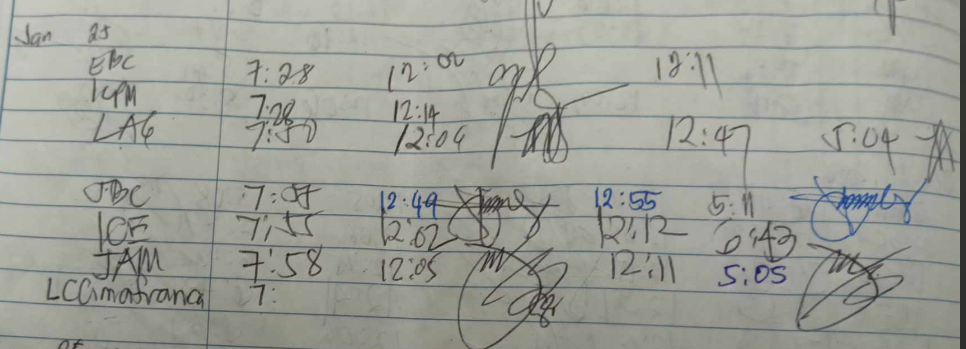 Jan 25
EBC 7:28 12:02 12:11
7:28 12:14
LAG 7:50 12:04 12:47 5:04
JBC 7:07 12:49 12:55 5:11
ICE 7:55 12:02 12:12 6:43
JAM 7:58 12:05 12:11 5:05
7: